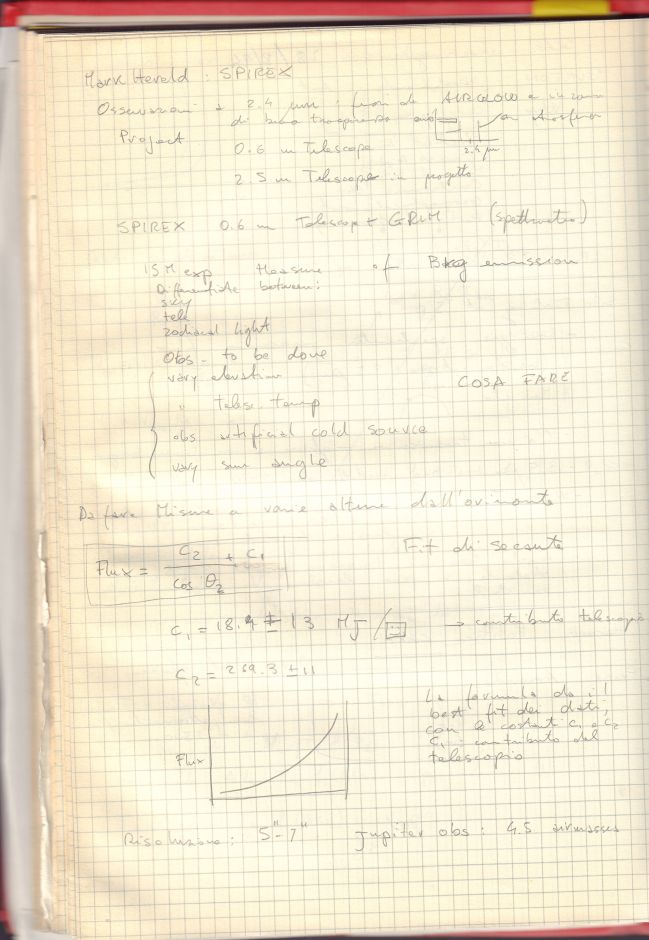 Mark Hereld : SPIREX
Osservazioni a 2.4 µm : fuori da AIRGLOW e in zona
di buona trasparenza
2.4 µm
Project
0.6 m Telescope
2.5 m Telescope in progetto
SPIREX 0.6 m Telescop + GRIM (spettrometro)
ISM exp Measure of Bkg emission
Differentiate between:
sky
tele
zodiacal light
Obs - to be done
vary elevation
" telesc. temp
obs artificial cold source
vary sun angle
COSA FARE
Da fare Misure a varie altezze dall'orizzonte
Flux = C2 / cos θz + C1
Fit di secante
C1 = 18.4 ± 13 MJ / → contributo telescopio
C2 = 269.3 ± 11
La formula da il
best fit dei dati,
con le costanti C1 e C2
C1 = contributo del
telescopio
Flux
Risoluzione : 5"-7" Jupiter obs : 4.5 airmasses